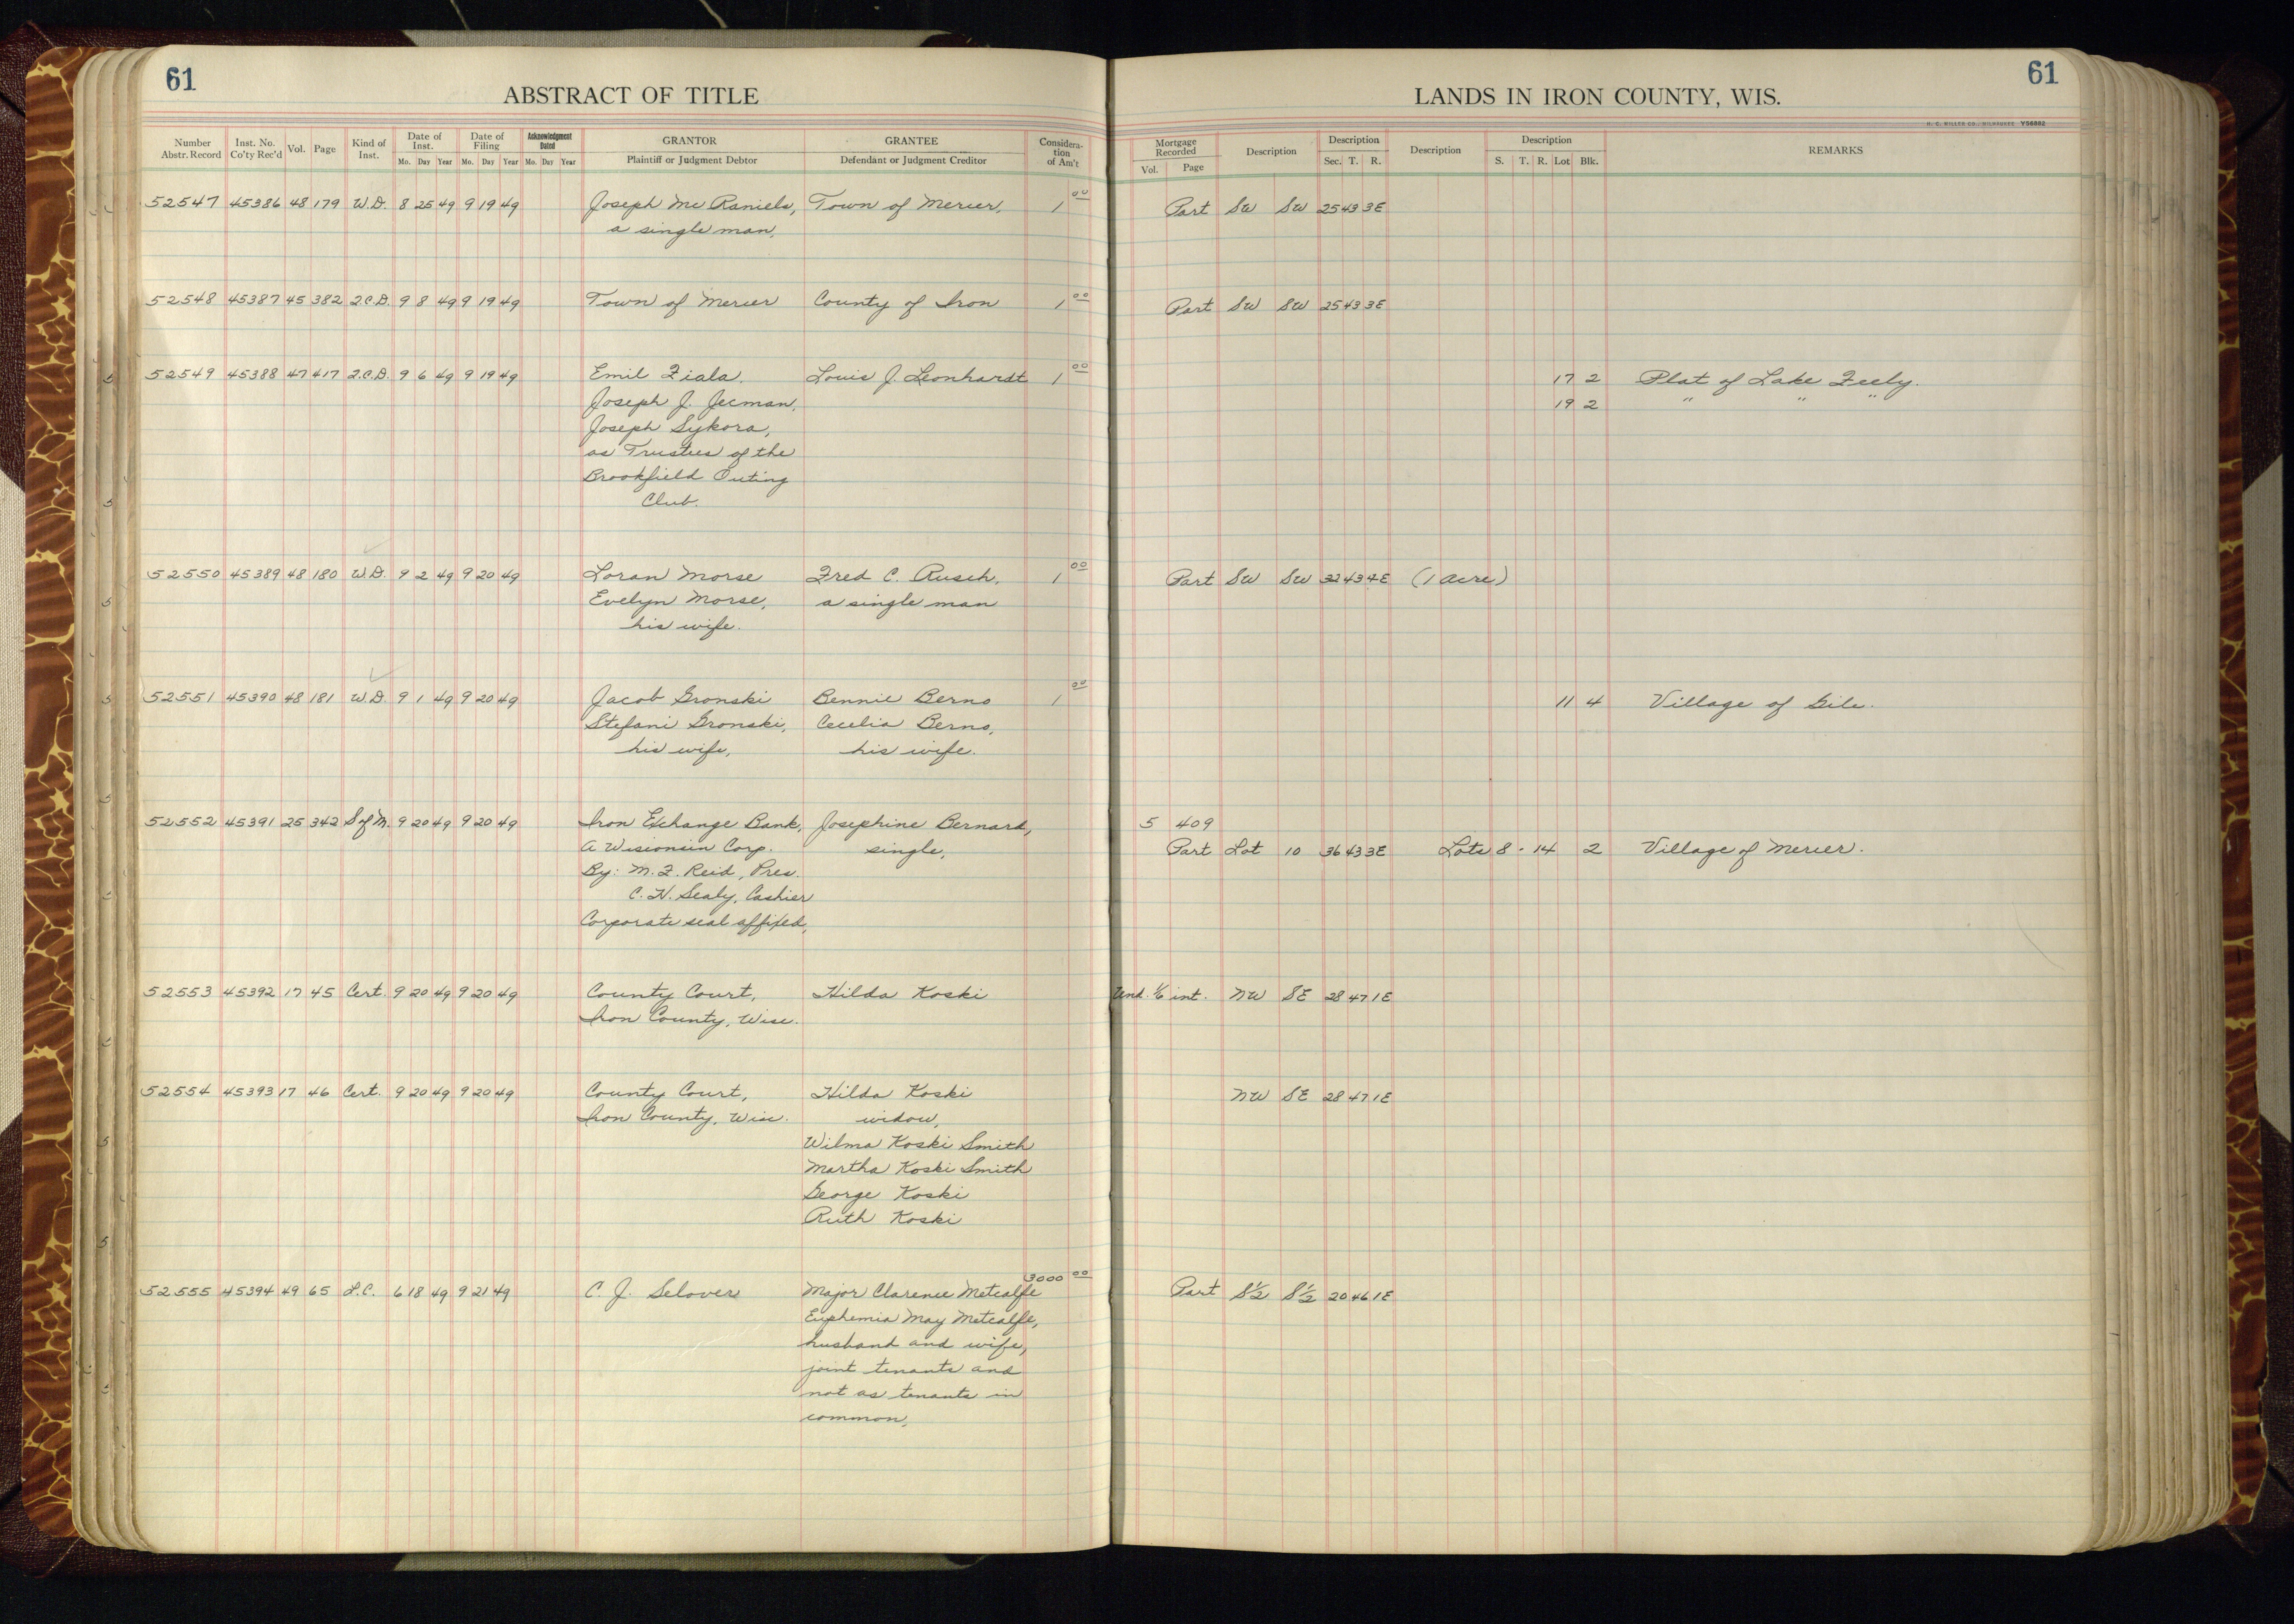 61
ABSTRACT OF TITLE
Number Abstr. Record Inst. No. Co'ty Rec'd Vol. Page Kind of Inst. Date of Inst. Mo. Day Year Date of Filing Mo. Day Year Acknowledgment Dated Mo. Day Year GRANTOR Plaintiff or Judgment Debtor GRANTEE Defendant or Judgment Creditor Consideration of Am't
52547 45386 48 179 W.D. 8 25 49 9 19 49 Joseph Mc Daniels, Town of Mercer, 1 00
a single man,
52548 45387 45 382 Q.C.D. 9 8 49 9 19 49 Town of Mercer County of Iron 1 00
52549 45388 47 417 Q.C.D. 9 6 49 9 19 49 Emil Fiala, Louis J. Leonhardt 1 00
Joseph J. Jecman,
Joseph Sykora,
as Trustees of the
Brookfield Outing
Club.
52550 45389 48 180 W.D. 9 2 49 9 20 49 Loran Morse Fred C. Rusch, 1 00
Evelyn Morse, a single man
his wife.
52551 45390 48 181 W.D. 9 1 49 9 20 49 Jacob Gronski Bennie Berno 1 00
Stefani Gronski, Cecelia Berno,
his wife, his wife.
52552 45391 25 342 S of M. 9 20 49 9 20 49 Iron Exchange Bank, Josephine Bernard,
A Wisconsin Corp. single,
By: M. F. Reid, Pres.
C. H. Sealy, Cashier
Corporate seal affixed,
52553 45392 17 45 Cert. 9 20 49 9 20 49 County Court, Hilda Koski
Iron County, Wisc.
52554 45393 17 46 Cert. 9 20 49 9 20 49 County Court, Hilda Koski
Iron County, Wisc. widow,
Wilma Koski Smith
Martha Koski Smith
George Koski
Ruth Koski
52555 45394 49 65 L.C. 6 18 49 9 21 49 C. J. Selover Major Clarence Metcalfe 3000 00
Euphemia May Metcalfe,
husband and wife,
joint tenants and
not as tenants in
common,
61
LANDS IN IRON COUNTY, WIS.
H. C. MILLER CO., MILWAUKEE Y56882
Mortgage Recorded Vol. Page Description Description Sec. T. R. Description Description S. T. R. Lot Blk. REMARKS
Part SW SW 25 43 3E
Part SW SW 25 43 3E
17 2 Plat of Lake Feely.
19 2 " " "
Part SW SW 32 43 4E (1 acre)
11 4 Village of Gile.
5 409
Part Lot 10 36 43 3E Lots 8-14 2 Village of Mercer.
Und. 1/6 int. NW SE 28 47 1E
NW SE 28 47 1E
Part S½ S½ 20 46 1E